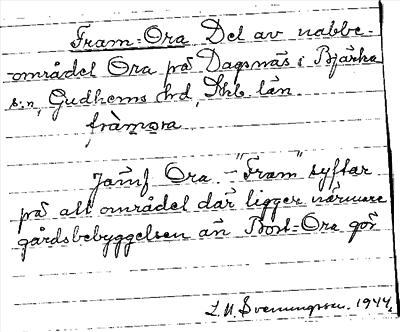 Fram-Ora Del av nabbe-
området Ora på Dagsnäs i Bjärka
s:n, Gudhems hd, Skb. län.
fràmòra
Jämf Ora - "Fram" syftar
på att området där ligger närmare
gårdsbebyggelsen än Bort-Ora gör
L.M. Svenungsson. 1944.